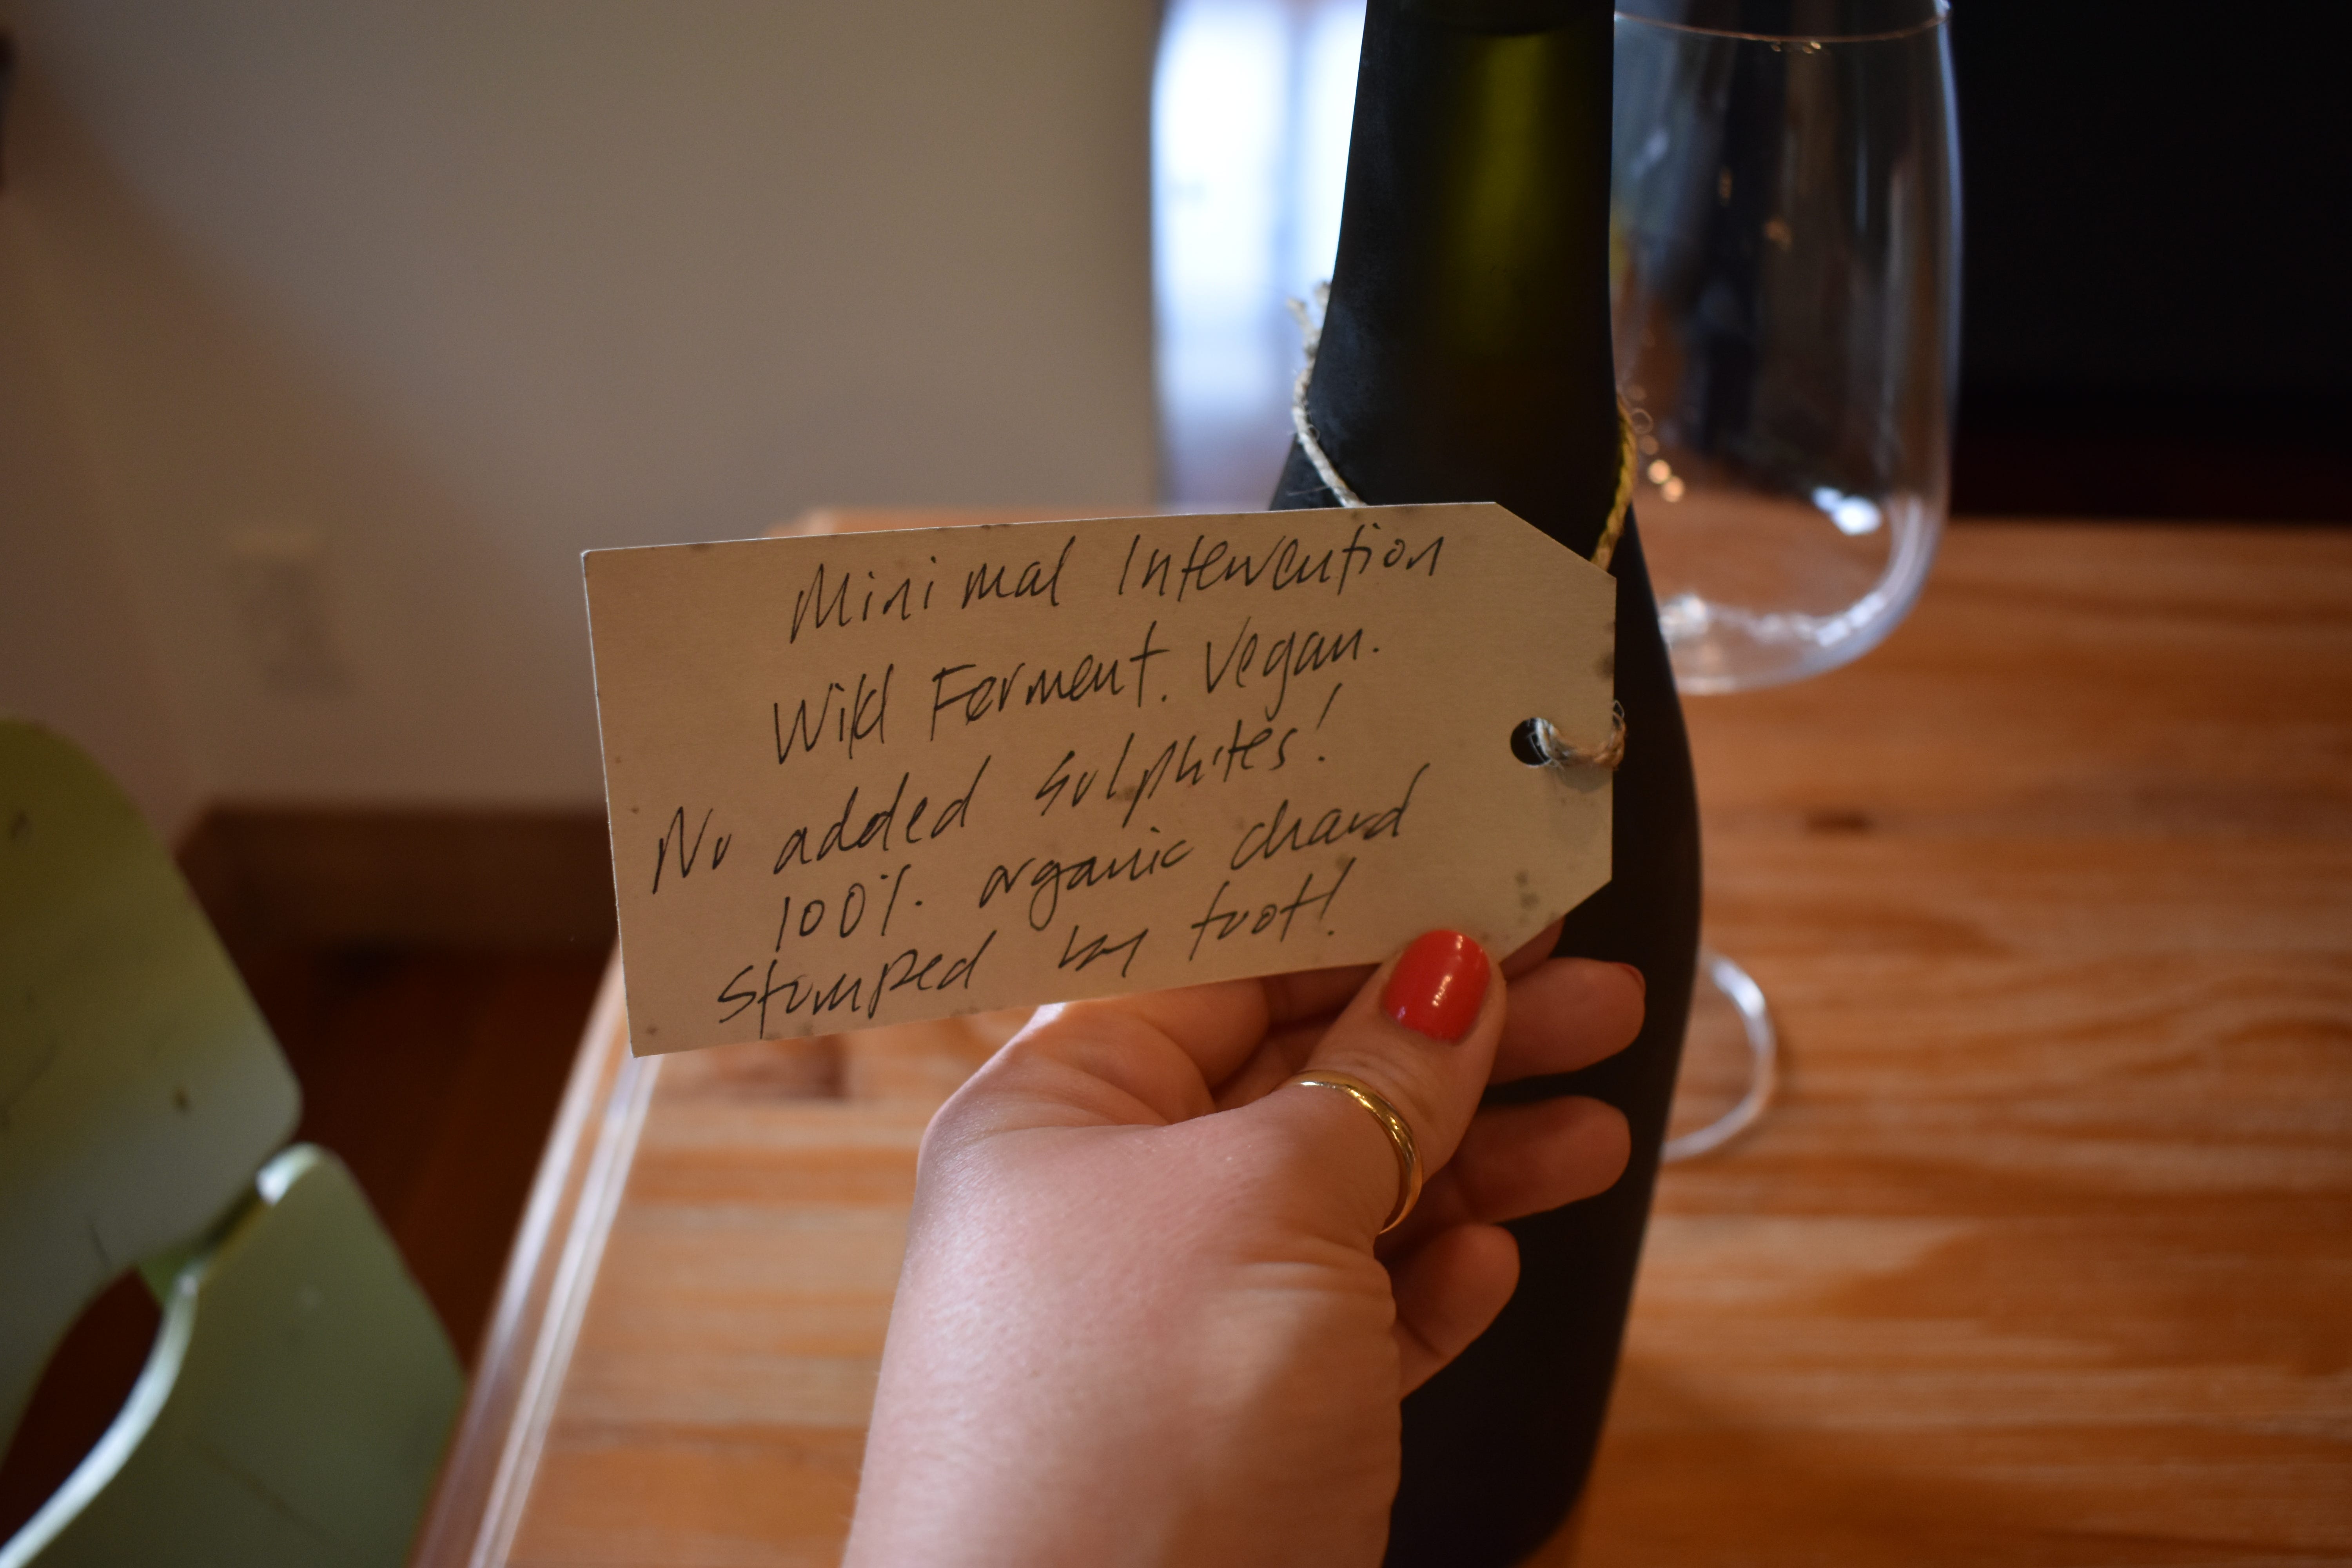 Minimal Intervention
Wild Ferment. Vegan.
No added sulphites!
100% organic chard
stomped by foot!